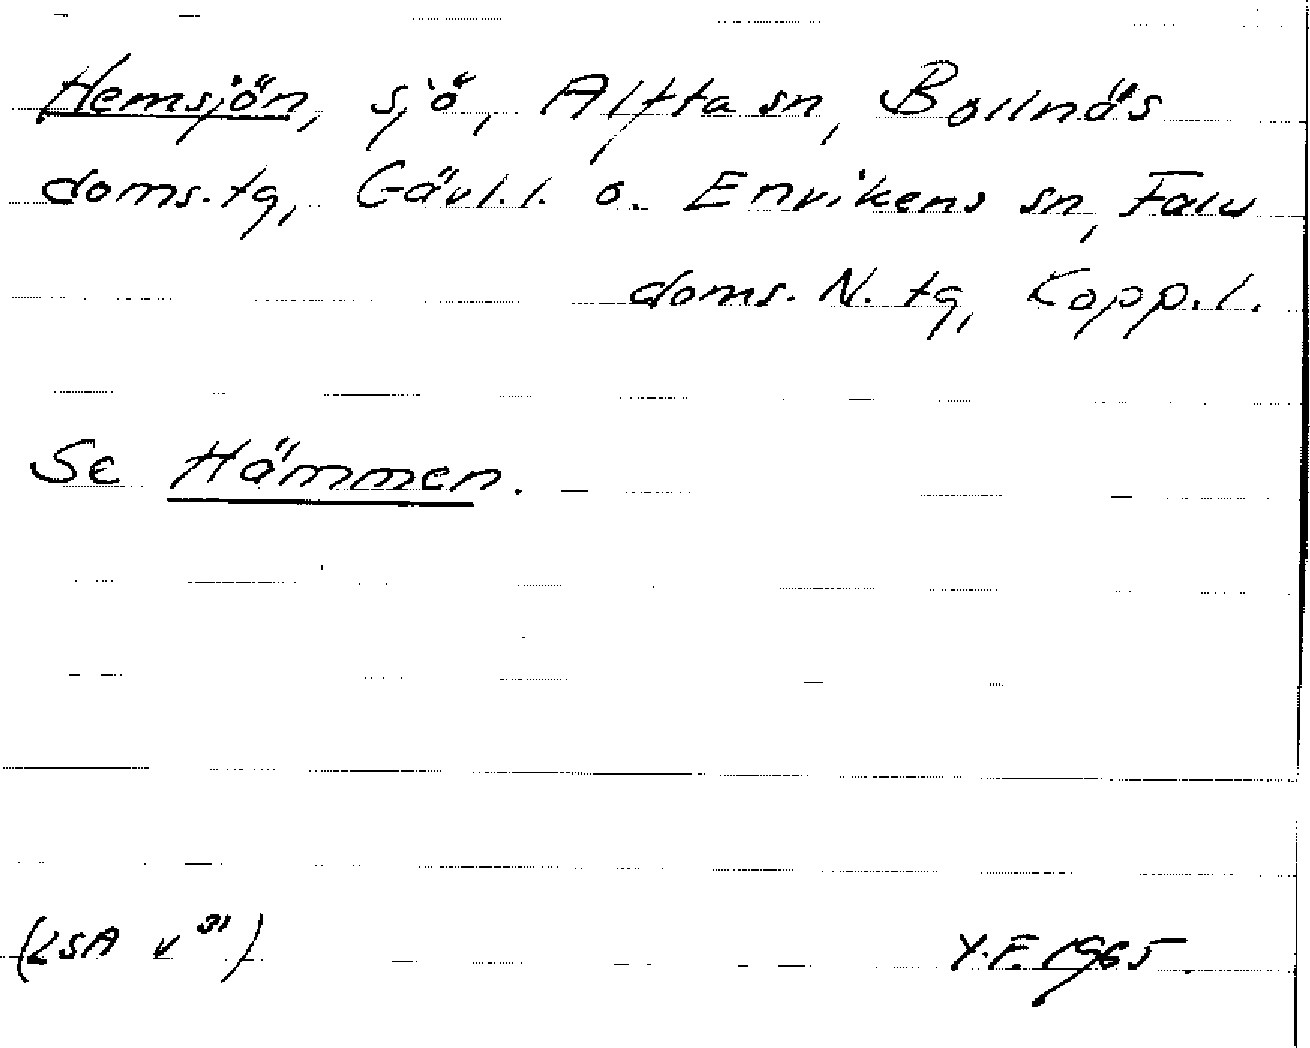 Hemsjön, sjö, Alfta sn, Bollnäs
doms. tg, Gävl. l. o. Envikens sn, Falu
doms. N. tg, Kopp. l.
Se Hämmen.
(LSA v 31)
Y. F. 1965.